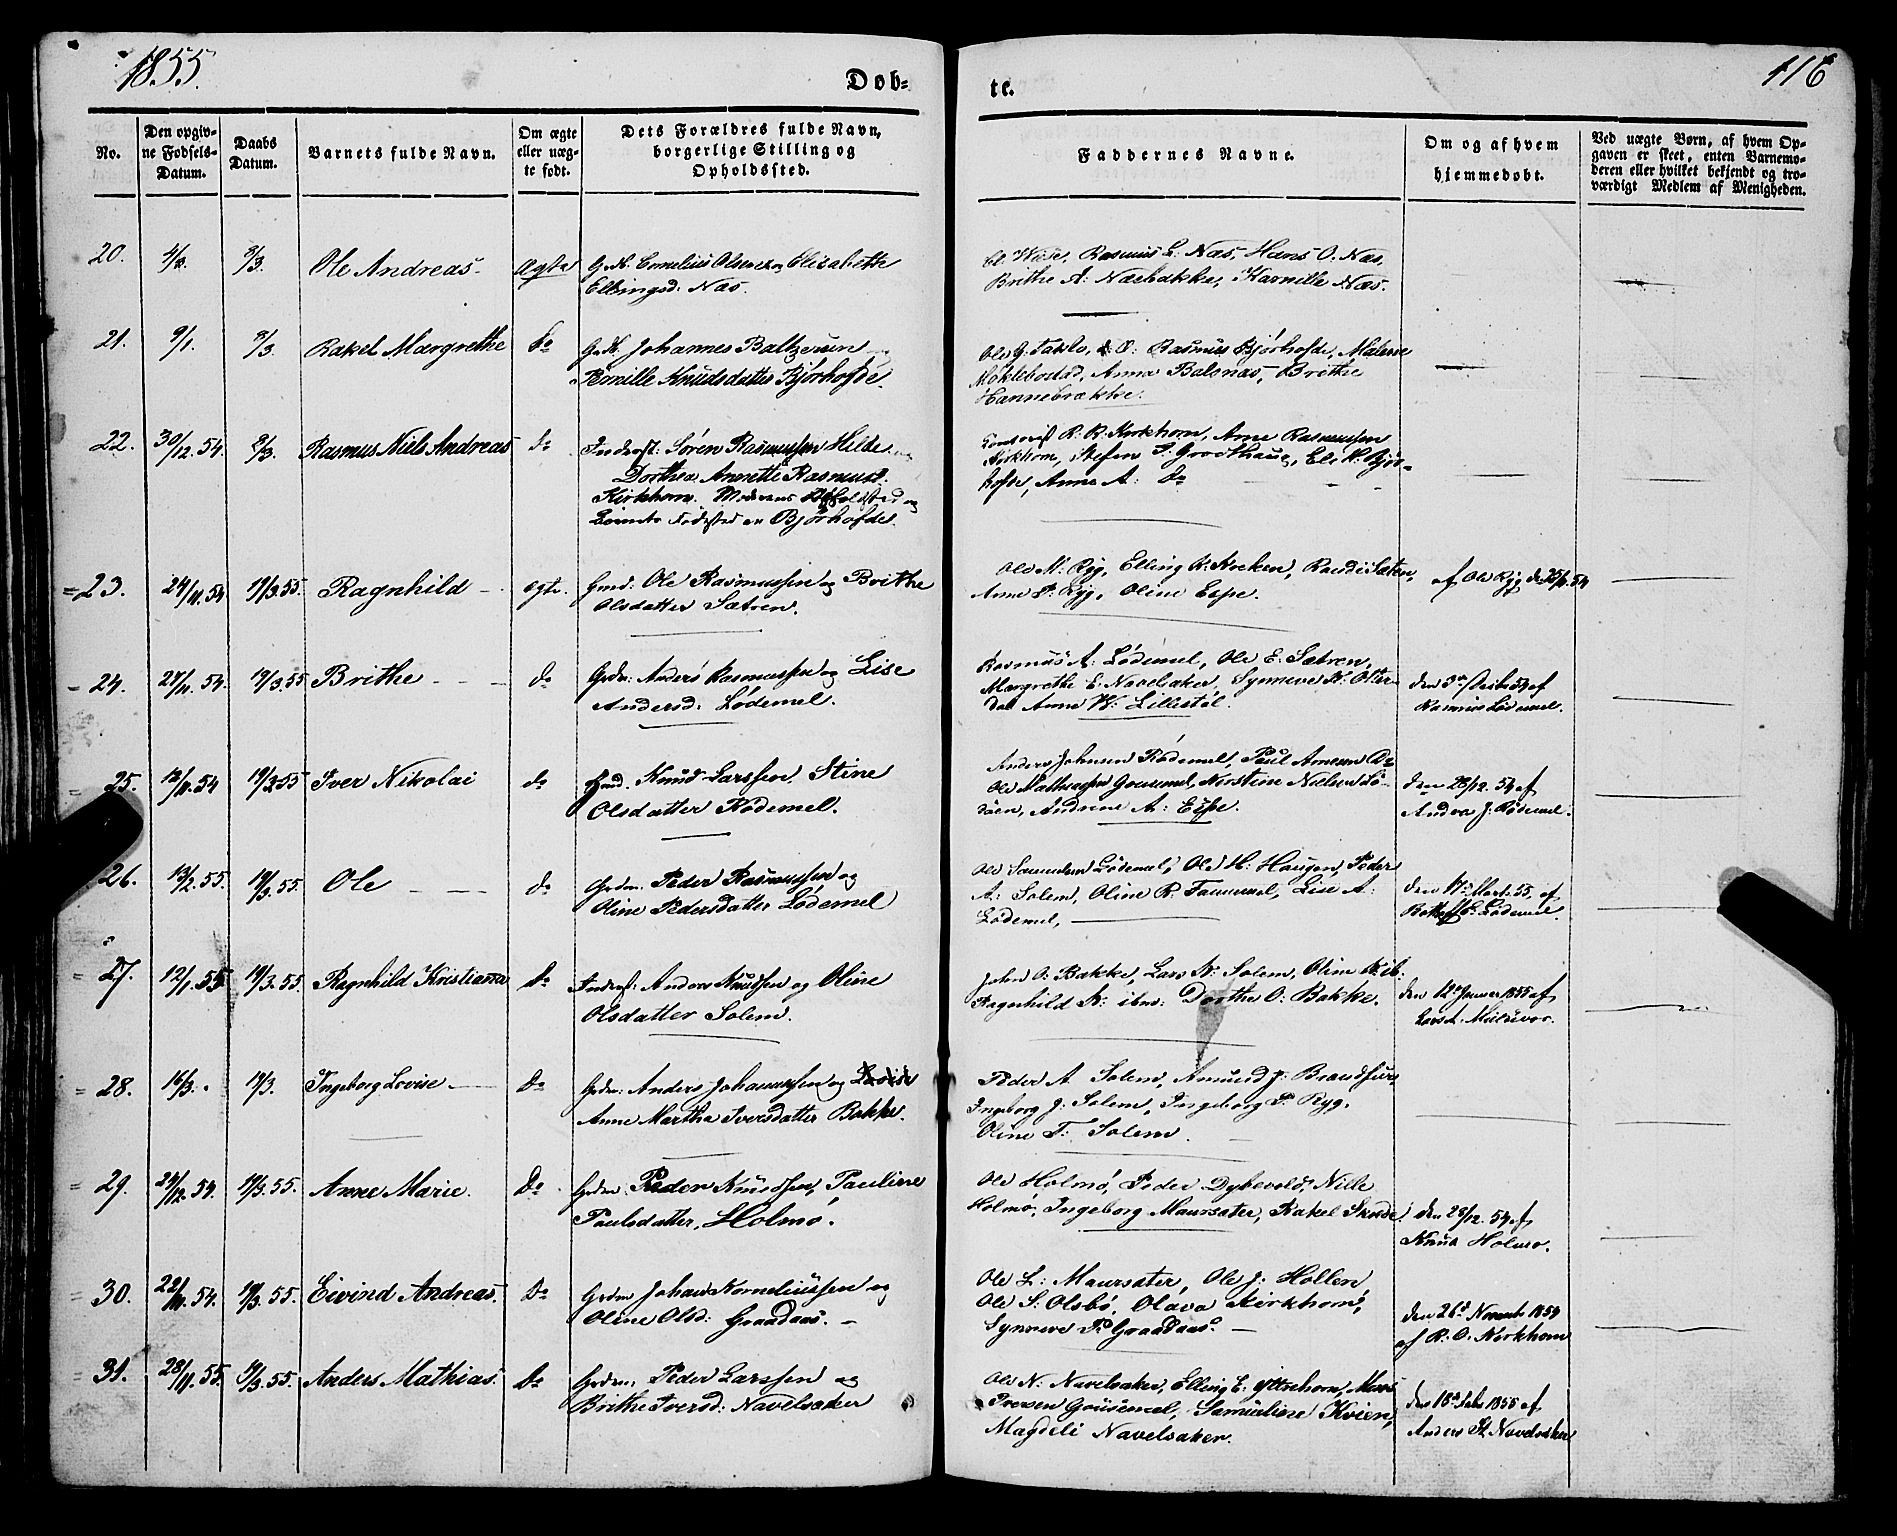 1855.
Døb-
te.
116
No.
Den opgiv-
ne Fødsels-
Datum.
Daabs
Datum.
Barnets fulde Navn.
Om ægte
eller uæg-
te født.
Dets Forældres fulde Navn,
borgerlige Stilling og
Opholdssted.
Faddernes Navne.
Om og af hvem
hjemmedøbt.
Ved uægte Børn, af hvem Op-
gaven er skeet, enten Barnemo-
deren eller hvilket bekjendt og tro-
værdigt Medlem af Menigheden.
20.
8/3.
Ole Andreas
ægte
Cornelius Olsen og Elisabeth
Ellingsd: Næs.
Rasmus L: Næs, Hans O. Næs,
Brithe A: Næsbakke, Karnille Næs.
21.
9/1.
8/3
Rakel Margrethe
do
Johannes Baltzersen og
Pernille Knudsdatter Bjørhofde.
Ole G. Taklo, Rasmus Bjørhofde, Malene
Møklebostad, Anna Balsnæs, Brithe
Hannebrække.
22.
30/12. 54
8/3.
Rasmus Niels Andreas
do
Inderst: Søren Rasmussen Hilde og
Dorthea Annette Rasmusd.
Kirkhorn. Moderens Opholdssted og
Fødested er Bjørhofde.
R. R. Kirkhorn, Arne Rasmussen
Kirkhorn, Stefen S: Grodthaug, Eli K. Bjør-
hofde, Anne A: do
23.
24/11. 54
19/3. 55.
Ragnhild
ægte.
Gmd: Ole Rasmussen og Brithe
Olsdatter Sætren.
Ole M. Ryg, Elling R: Kroken, Randi Sætre,
Anne P. Ryg, Oline Espe.
af Ole Ryg d 25/11 54
24.
27/11. 54.
19/3. 55
Brithe
do
Grdm: Anders Rasmussen og Lise
Andersd: Lødemel.
Rasmus A: Lødemel, Ole E. Sætren,
Margrethe E: Navelsaker, Synneve N: Otter-
dal Anne W: Lillestøl.
den 3de 54 af
Rasmus Lødemel.
25.
12/11. 54
19/3 55
Iver Nikolai
do
Knud Larssen, Stine
Olsdatter Rødemel.
Anders Johnsen Rødemel, Paul Arnesen do
Ole Mathiassen Gousemel, Kerstine Nielsen Lø-
døen, Andrine A: Espe.
den 28/12. 54 af
Anders J. Rødemel.
26.
13/2. 55.
19/3. 55.
Ole
do
Grdm. Peder Rasmussen og
Oline Pedersdatter Lødemel
Ole Lødemel, Ole H: Haugen, Peder
A: Solem, Oline R. Lise A:
Lødemel,
den Mart. 55, af
Lødemel.
27.
12/1. 55
19/3. 55.
Ragnhild Kristianna
do
Inderst: Anders Knudsen og Oline
Olsdatter Solem.
John O: Bakke, Lars K: Solem, Oline K: ib:
Ragnhild K: ibm: Dorthe O: Bakke.
den 12te Januar 1855 af
Lars A.
28.
16/3.
19/3.
Ingeborg Lovise
do
Grdm: Anders Johannessen og
Anne Martha Iversdatter Bakke.
Peder A Solem, Amund J: Brandfur
Ingeborg J: Solem, Ingeborg P. Ryg.
Oline T: Solem.
29.
24/12. 54.
19/3. 55.
Anne Marie.
do
Grdm: Peder Knudsen, Pauline
Paulsdatter, Holmø.
Ole Holmø, Peder Dybevold, Nille
Holmø, Ingeborg Maursæter, Rakel Skade.
den 28/12. 54 af
Knud Holmø.
30.
22/11. 54.
19/3. 55.
Eivind Andreas.
do
Grdm Johan Korneliussen og
Oline Olsd: Graadaas.
Ole L: Maursæter, Ole J: Hollen
Ole S: Olsbø, Olava Kirkhorn,
Synneve P: Graadaas.
den 26de Novemb 1854
af R. O. Kirkhorn
31.
28/11. 55.
19/3. 55.
Anders Mathias.
do
Grdm: Peder Larssen og
Brithe Iversd: Navelsaker
Ole N: Navelsaker, Elling E: Yttrehorn, Mons
Iversen Gousemel, Samueline Kvien,
Magdeli Navelsaker.
den 18de 1855 af
Anders Navelsaker